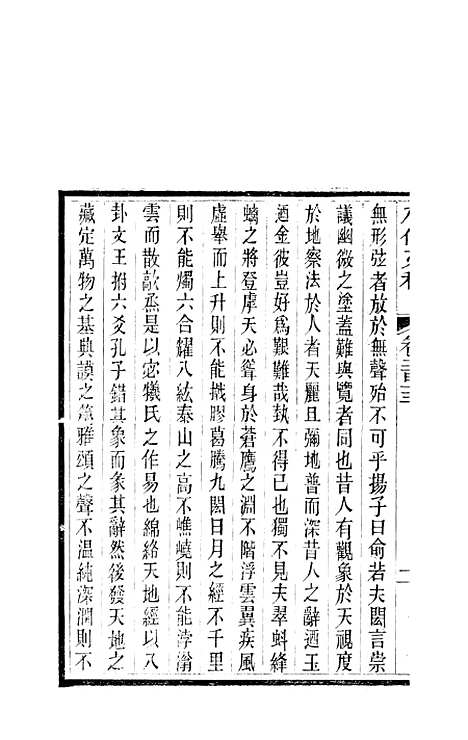 無形弦者放於無聲殆不可乎揚子曰俞若夫閎言崇
議幽微之塗蓋難與覽者同也昔人有觀象於天視度
於地察法於人者天麗且彌地普而深昔人之辭迺玉
迺金彼豈好爲艱難哉埶不得已也獨不見夫翠虯絳
螭之將登虖天必聳身於蒼鷹之淵不階浮雲翼疾風
虛舉而上升則不能撠膠葛騰九閎日月之經不千里
則不能燭六合耀八紘泰山之高不嶕嶢則不能浡滃
雲而散歊烝是以宓犧氏之作易也綿絡天地經以八
卦文王附六爻孔子錯其象而彖其辭然後發天地之
藏定萬物之基典謨之篇雅頌之聲不溫純深潤則不